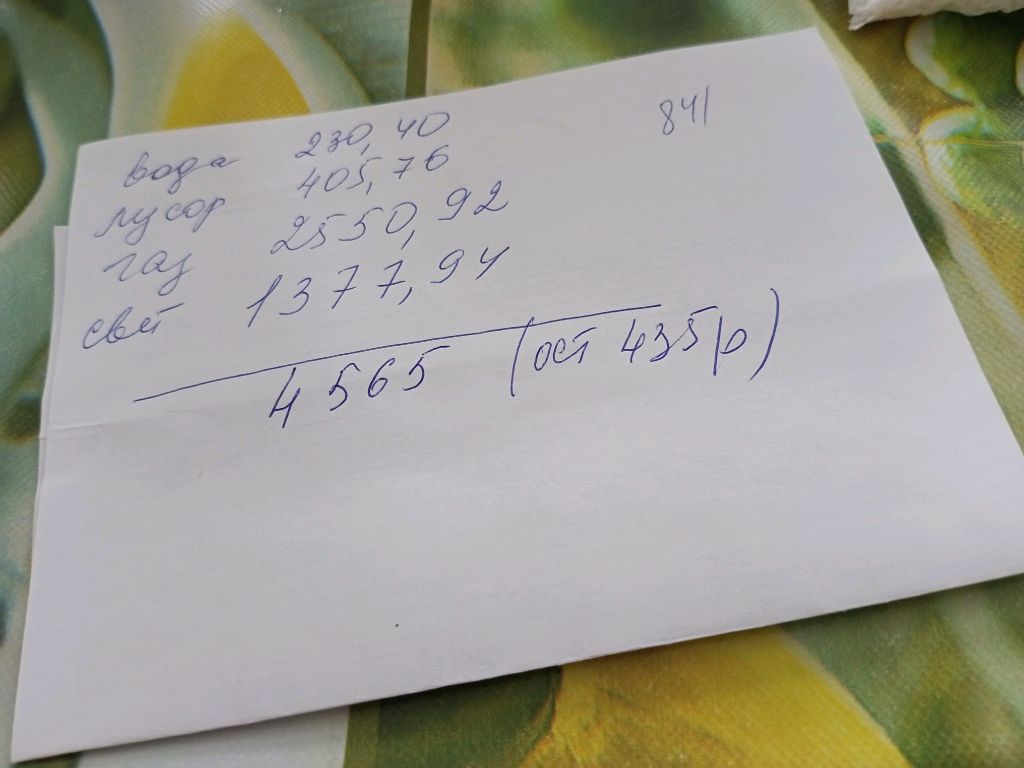 вода 230,40 841
мусор 405,76
газ 2550,92
свет 1377,94
4565 (ост 435р)